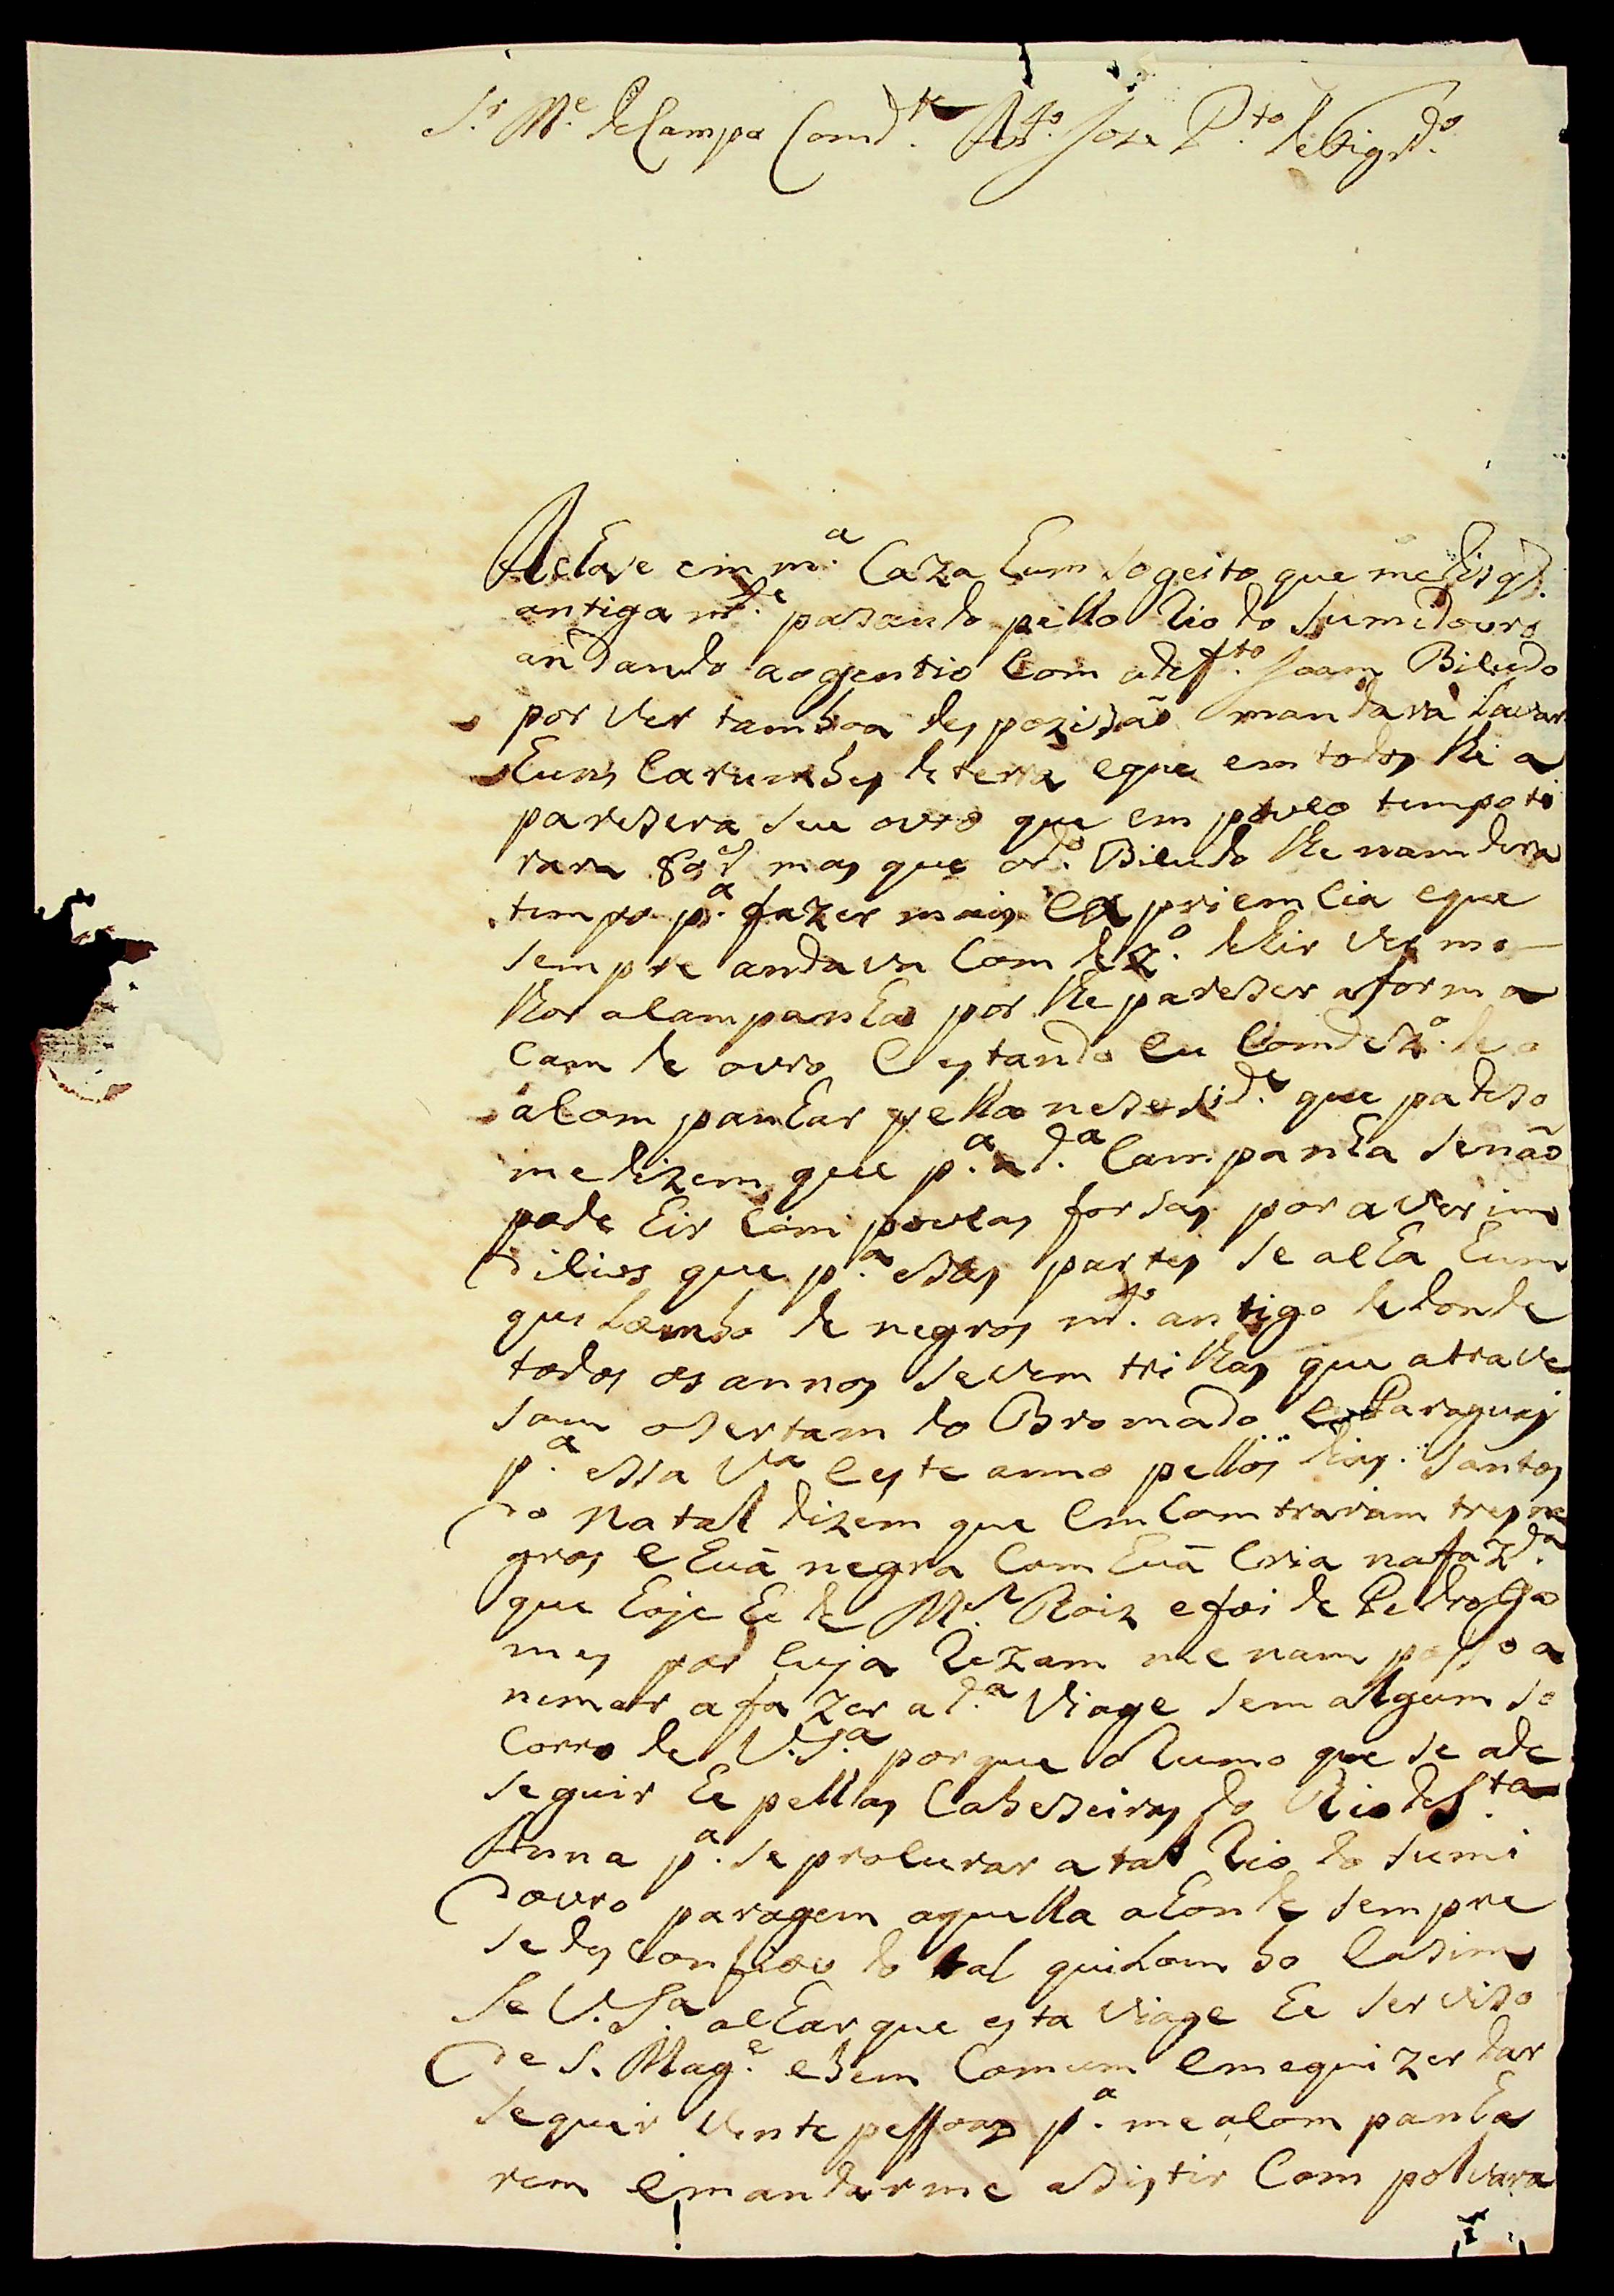 S.r M.e de Campo Comd.te Ant.o Joze P.to de Figrd.o
Achase em m.a Caza hum sogeito que me dis q.
antiga m.te pasando pello Rio do Sumidouro
andando ao gentio Com o def.to Joam Biludo
por ver tam boa despozisão mandara Lavar
huns Carumbes de terra eque em todos lhe a
paresera seu ouro que em pouco tempo ti
rara 8.as mas que o d.o Biludo lhe nam dera
tempo p.a fazer mais expriemcia eque
sempre andava Com dez.o de hir ver me
lhor a Campanha por lhe pareser a forma
cam de ouro e estando eu Com dez.o de o
acompanhar pella nesesid.e que padeso
me dizem que p.a a d.a Campanha senão
pode hir Com poucas forsas por aver in
dicios que p.a esas partes se acha hum
quilombo de negros m.to antigo de donde
todos os annos se vem trilhas que atrave
sam o sertam do Bromado e Paraguay
p.a essa V.a e este anno pellos dias santos
do Natal dizem que emcomtraram tres ne
gros e huã negra Com huã Cria na faz.da
que hoje he de M.el Roiz e foi de Pedro Go
mes por cuja Rezam me nam posso a
nimar a fazer a d.a Viage sem algum so
corro de V.S.a porque o Rumo que se a de
seguir he pellas Cabeseiras do Rio de S.ta
Anna p.a se procurar a tal Rio do Sumi
douro paragem aquella a honde sempre
se desconfiou do tal quilombo e asim
se V.S.a achar que esta viage he serviso
de S. Mag.e e bem Comum e me quizer dar
sequer vinte pessoas p.a me acompanha
rem e mandarme asistir Com polvara